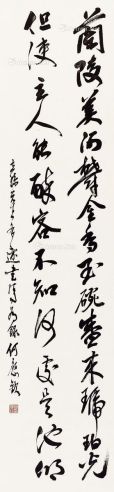 蘭陵美酒鬱金香玉碗盛來琥珀光
但使主人能醉客不知何處是他鄉